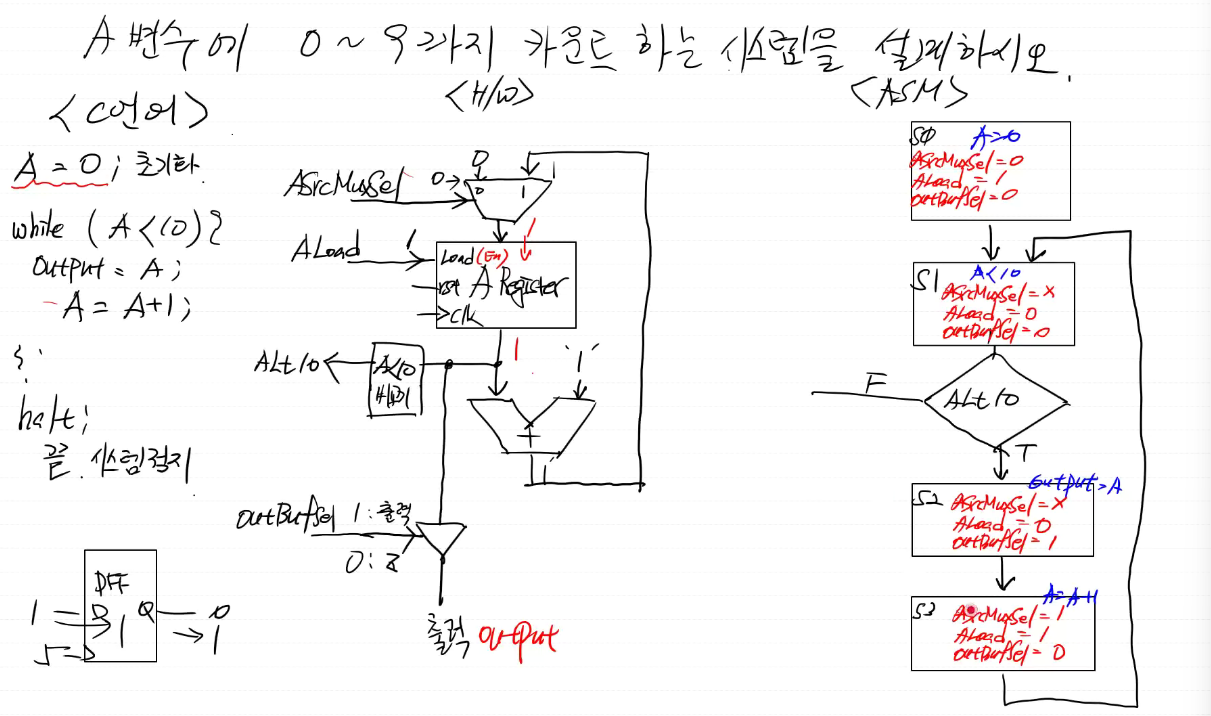 A 변수에 0 ~ 9까지 카운트 하는 시스템을 설계하시오.
<C언어>
A = 0; 초기화
while (A<10){
output = A;
A = A+1;
}
halt;
끝. 시스템정지
DFF
1 D 1 Q 0
1
<H/W>
0
ASrcMuxSel 0→ 0 1 1
ALoad 1 Load(En) 1
rst A Register
clk
1 '1'
ALt10 A<10 비교기
+
1
outBufSel 1: 출력
0: Z
출력 output
<ASM>
S0 A=0
ASrcMuxSel=0
ALoad = 1
outBufSel=0
S1 A<10
ASrcMuxSel=X
ALoad = 0
outBufSel=0
F ALt10
T
output=A
S2 ASrcMuxSel=X
ALoad = 0
outBufSel=1
A=A+1
S3 ASrcMuxSel=1
ALoad = 1
outBufSel= 0